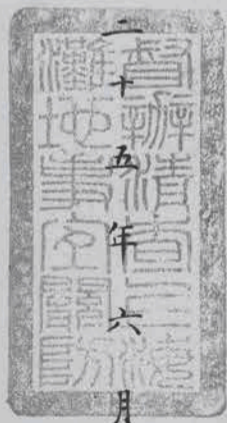 二十五年六月
督辦清查
灘地事宜關防